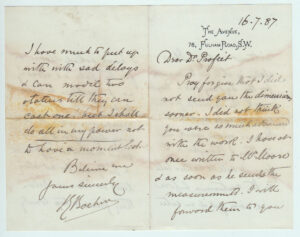 16.7.87
THE AVENUE,
76, FULHAM ROAD, S.W.
Dear Dr Profeit
Pray forgive that I did
not send you the dimensions
sooner. I did not think
you were so much
with the work. I have at
once written to
& as soon as he sends the
measurements I will
forward them to you
I have much to put up
with with sad delays
& can
till they can
cast one. but I shall
do all in my power not
to have a moment lost.
Believe me
yours sincerely
JE Boehm